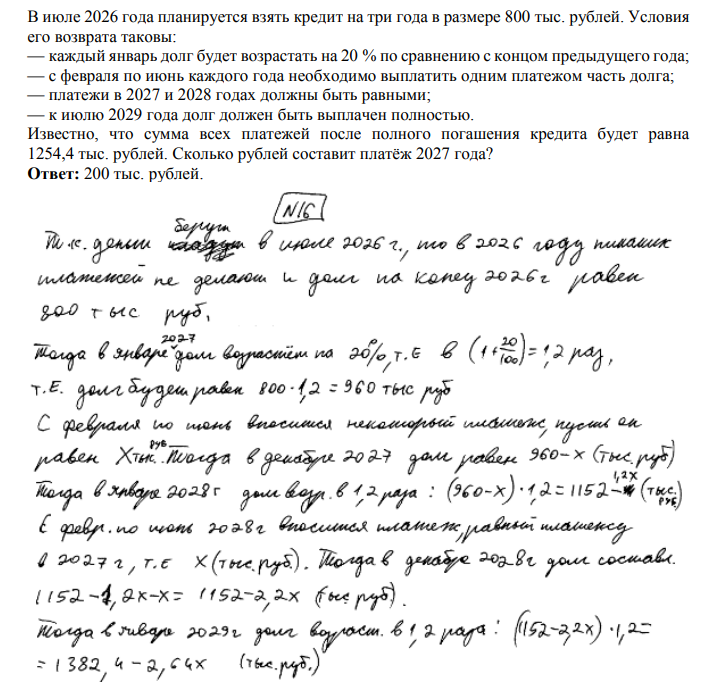 В июле 2026 года планируется взять кредит на три года в размере 800 тыс. рублей. Условия
его возврата таковы:
— каждый январь долг будет возрастать на 20 % по сравнению с концом предыдущего года;
— с февраля по июнь каждого года необходимо выплатить одним платежом часть долга;
— платежи в 2027 и 2028 годах должны быть равными;
— к июлю 2029 года долг должен быть выплачен полностью.
Известно, что сумма всех платежей после полного погашения кредита будет равна
1254,4 тыс. рублей. Сколько рублей составит платёж 2027 года?
Ответ: 200 тыс. рублей.
N16
Т.к. деньги берут в июле 2026 г., то в 2026 году никаких
платежей не делают и долг на конец 2026 г равен
800 тыс руб.
Тогда в январе 2027 долг возрастёт на 20%, т.е в (1+20/100)=1,2 раз,
т.е. долг будет равен 800·1,2=960 тыс руб
С февраля по июнь вносится некоторый платеж, пусть он
равен X тыс. руб. Тогда в декабре 2027 долг равен 960-x (тыс. руб)
Тогда в январе 2028г долг возр. в 1,2 раза: (960-x)·1,2=1152-1,2x (тыс. руб.)
С февр. по июнь 2028г вносится платеж, равный платежу
в 2027 г, т.е X (тыс. руб.). Тогда в декабре 2028г долг составл.
1152-1,2x-x= 1152-2,2x (тыс руб).
Тогда в январе 2029г долг возраст. в 1,2 раза: (1152-2,2x)·1,2=
=1382,4-2,64x (тыс. руб.)